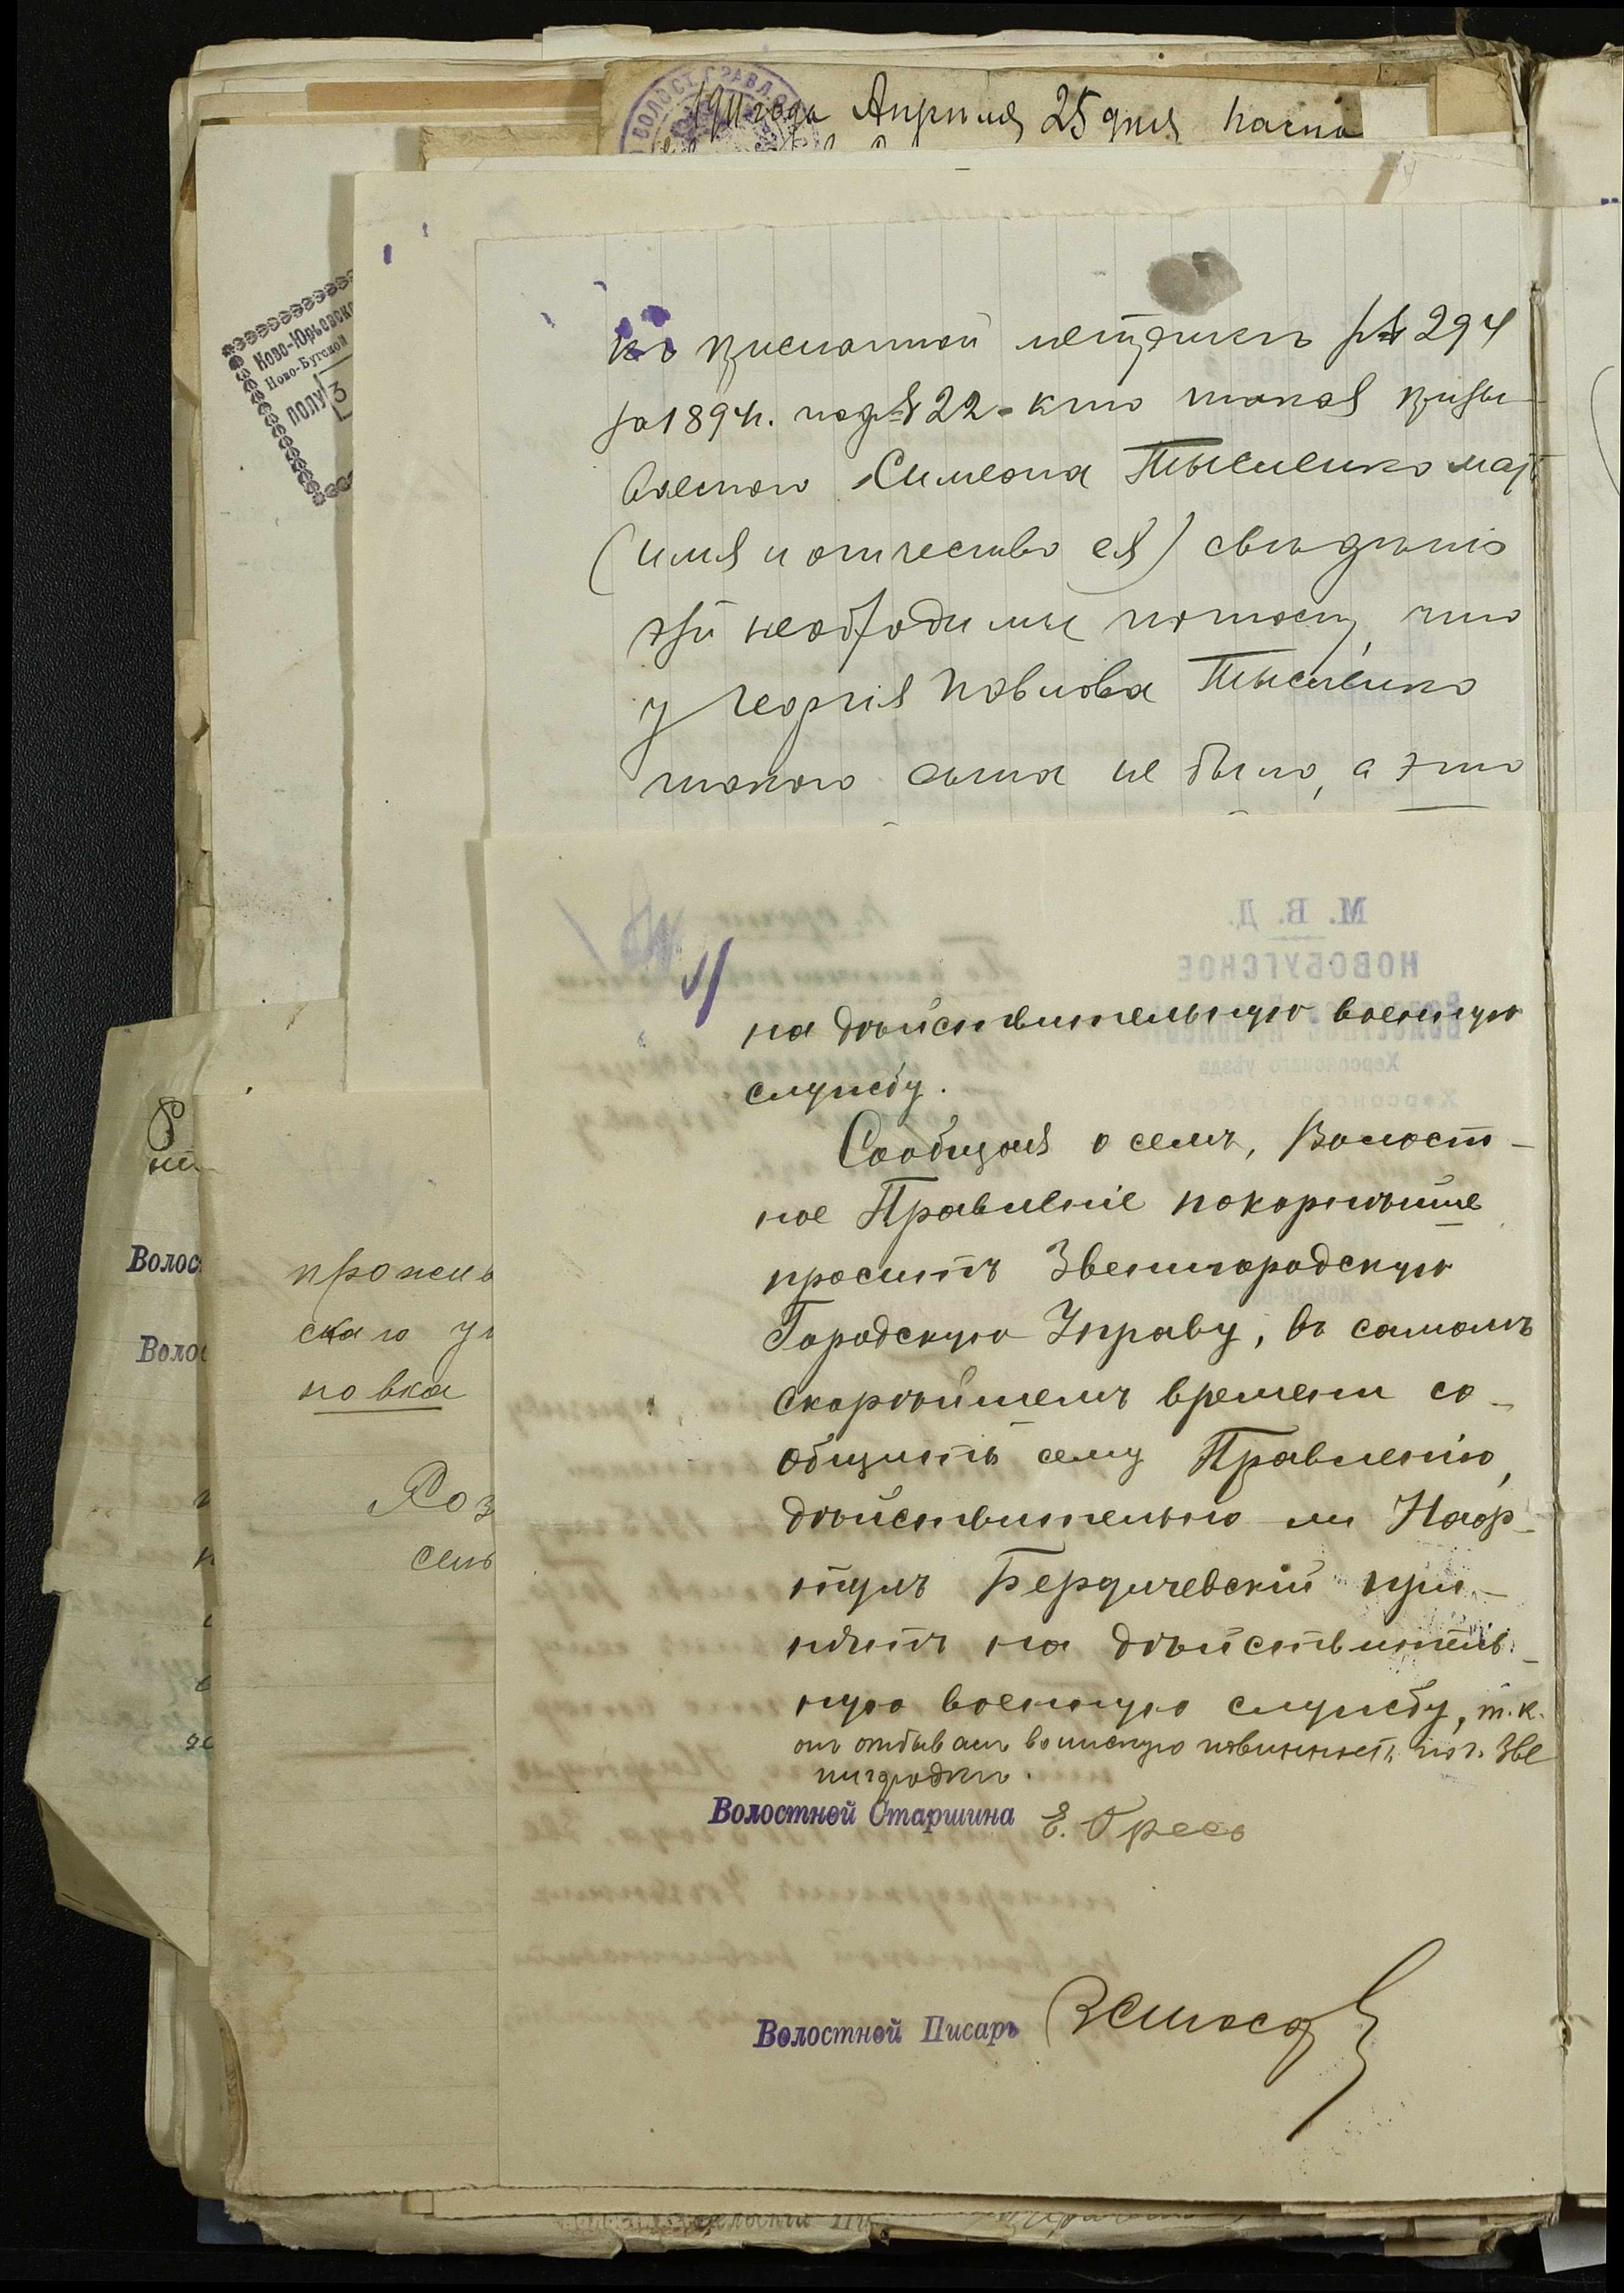 ВОЛОСТ. ПРАВЛ.
1911 года Апреля 25 дня
Ново-Юрьевско
Ново-Бугской
ПОЛУ
3
къ присланной метрикѣ № 294
за 1894 г. под № 22 - кто такая призы
ваемого Симеона Тысиенко мат
(имя и отчество ея) свѣдѣнія
эти необходимы потому, что
у Георгія Павлова Тысиенко
такого сына не было, а это
М. В. Д.
НОВОБУГСКОЕ
Херсонскаго уѣзда
на дѣйствительную военную
службу.
Сообщая о семъ, Волост-
ное Правленіе покорнѣйше
проситъ Звенигородскую
Городскую Управу, въ самомъ
скорѣйшемъ времени со-
общить сему Правленію,
дѣйствительно ли Нафр-
тулъ Бердичевскій при-
нятъ на дѣйствитель-
ную военную службу, т.к.
онъ отбывалъ воинскую повинность по г. Зве
нигородкѣ.
Волостной Старшина Е.
Волостной Писарь
Волос
Волос
прожив
скаго у
новка
Роз
сель